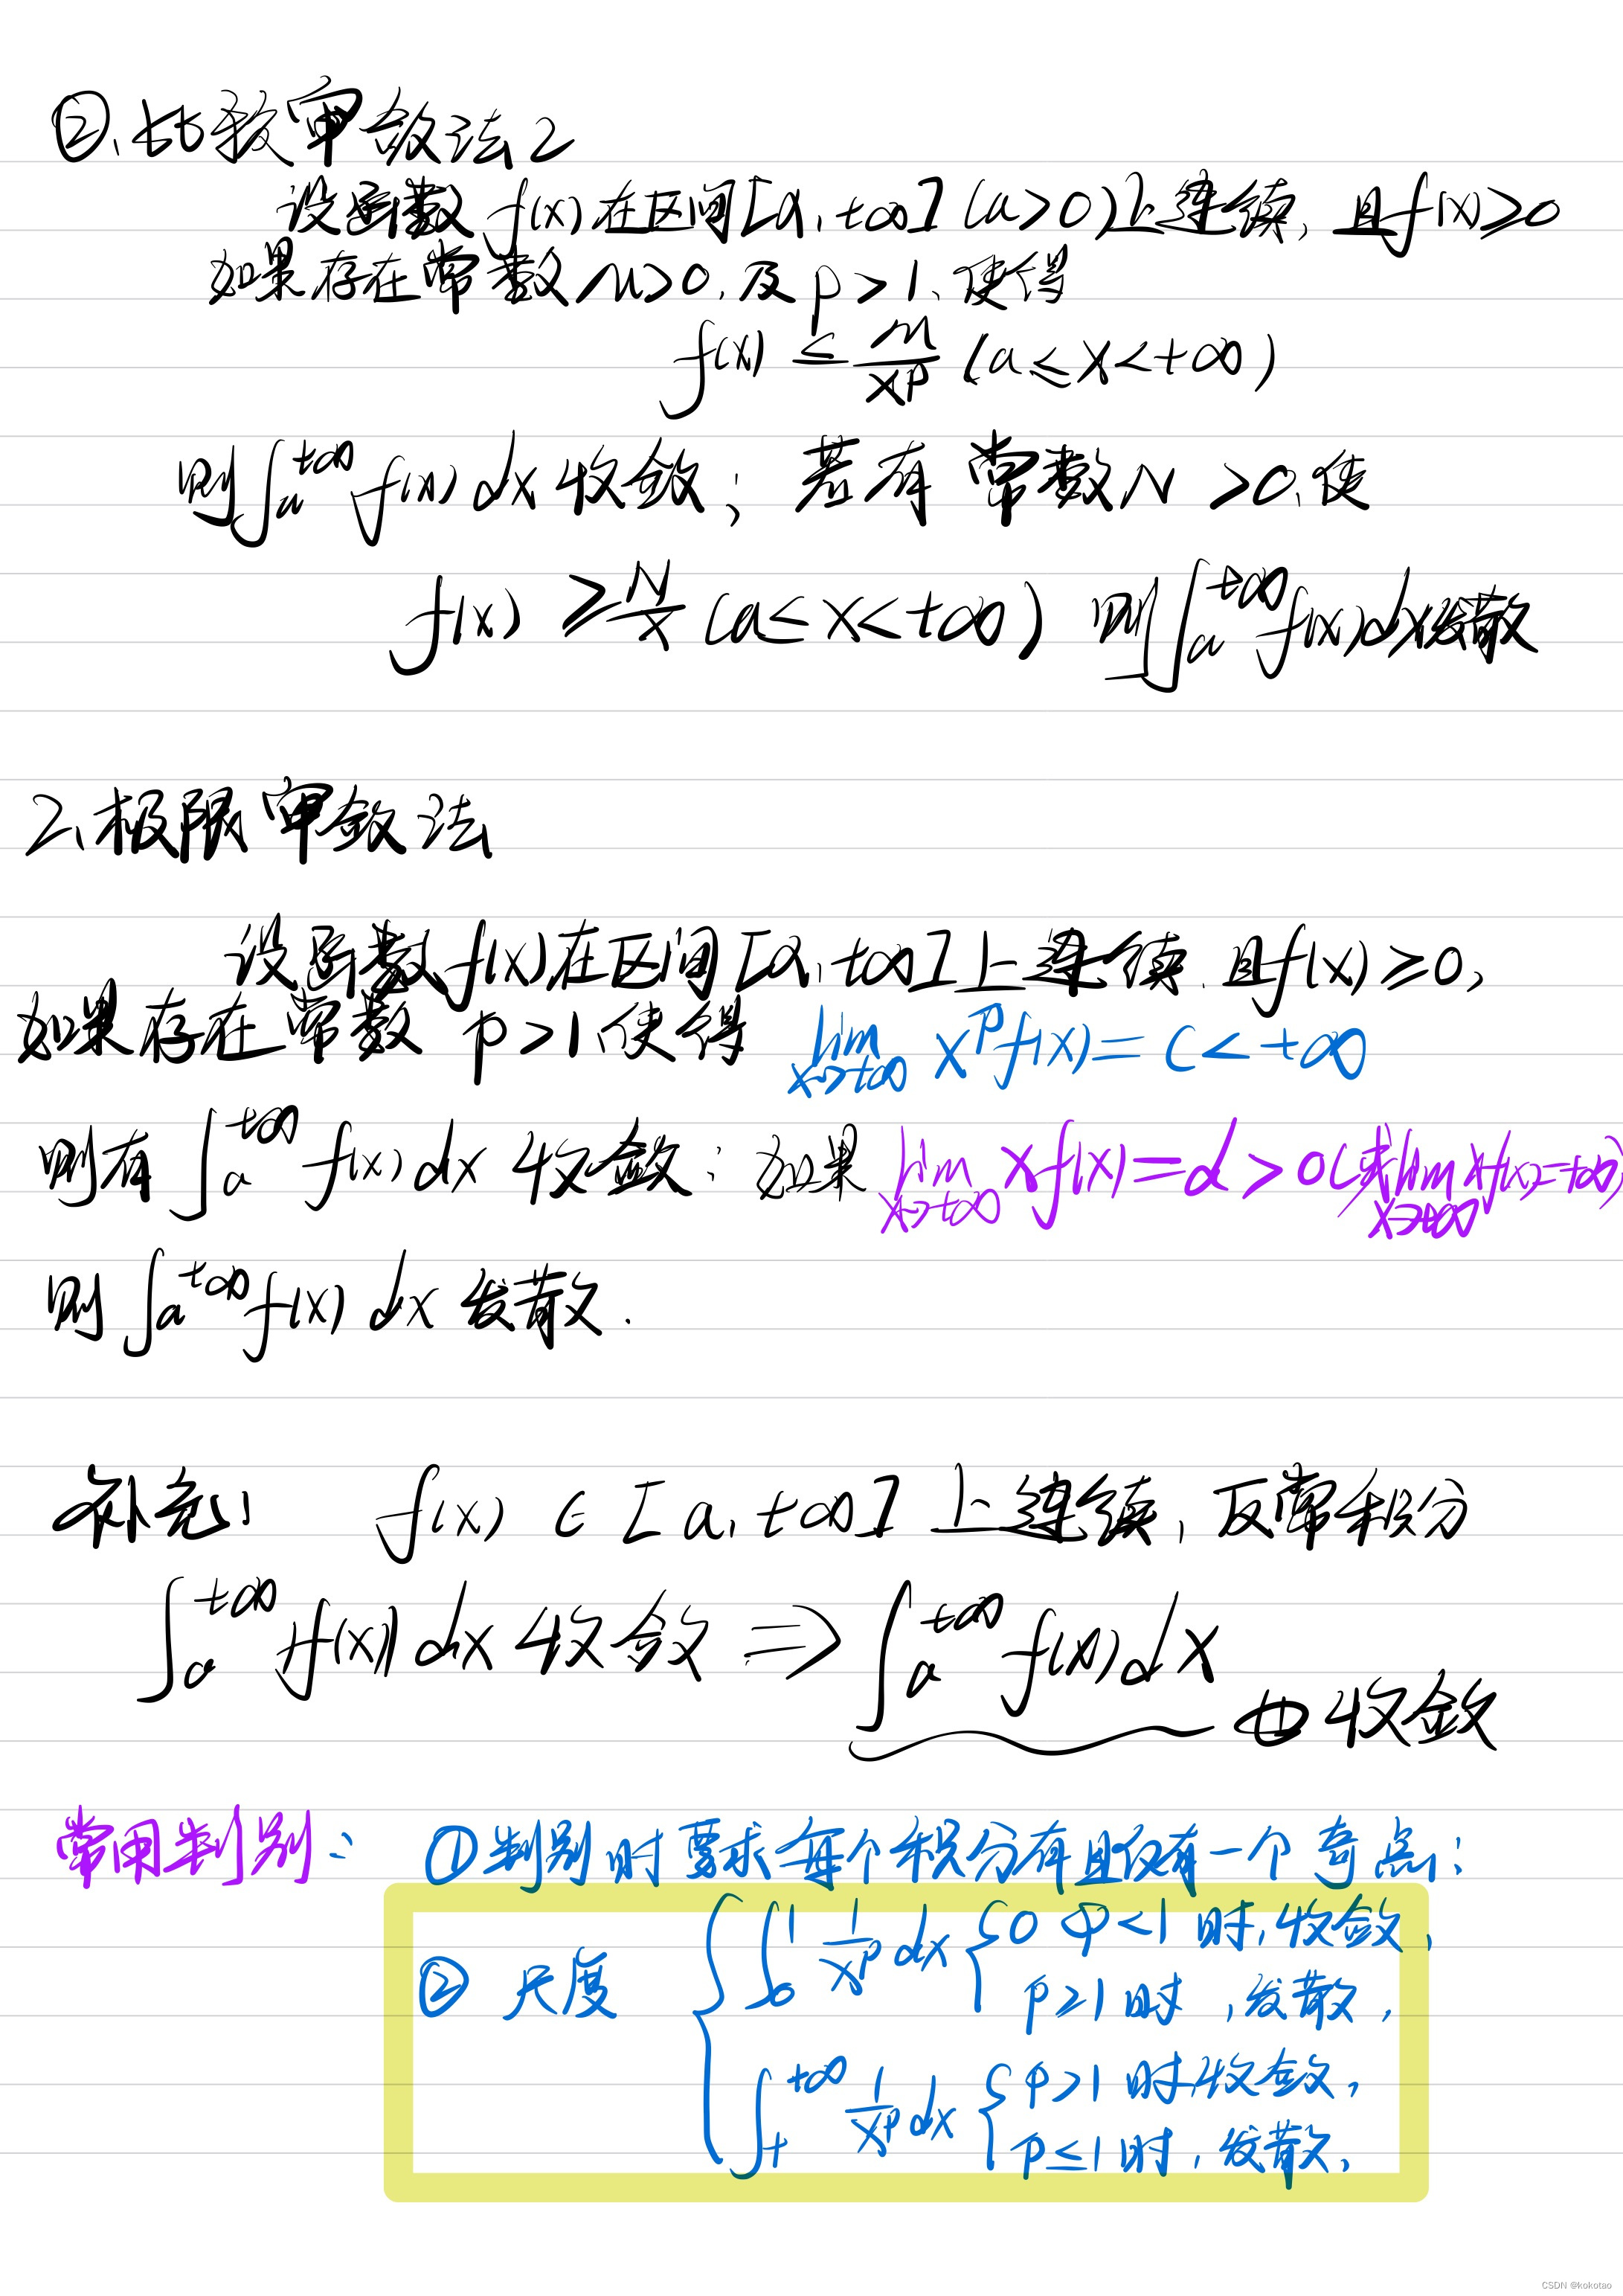 ②、比较审敛法2
设函数 f(x) 在区间[a,+∞] (a>0)上连续, 且f(x)≥0
如果存在常数M>0, 及p>1, 使得
f(x) ≤ M/x^p (a≤x<+∞)
则∫_a^{+∞} f(x) dx 收敛; 若有常数N>0, 使
f(x) ≥ N/x (a≤x<+∞) 则∫_a^{+∞} f(x)dx发散
2、极限审敛法
设函数f(x)在区间[a,+∞]上连续, 且f(x)≥0,
如果存在常数 p>1, 使得 lim_{x→+∞} x^p f(x) = C < +∞
则有 ∫_a^{+∞} f(x) dx 收敛; 如果 lim_{x→+∞} x f(x) = d > 0 (或lim_{x→+∞} xf(x)=+∞)
则 ∫_a^{+∞} f(x) dx 发散.
补充: f(x) ∈ [a,+∞] 上连续, 反常积分
∫_a^{+∞} |f(x)| dx 收敛 ⇒ ∫_a^{+∞} f(x) dx
也收敛
常用判别: ①判别时要求每个积分有且仅有一个奇点;
② 尺度 { ∫_0^1 1/x^p dx { 0<p<1 时, 收敛,
p≥1 时, 发散,
∫_1^{+∞} 1/x^p dx { p>1 时, 收敛,
p≤1 时, 发散,
CSDN @kokotao